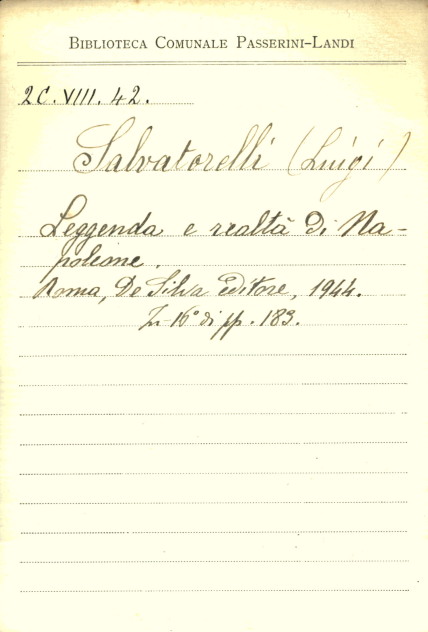 BIBLIOTECA COMUNALE PASSERINI-LANDI
2C. VIII. 42.
Salvatorelli (Luigi)
Leggenda e realtà di Na-
poleone.
Roma, De Silva editore, 1944.
In-16° di pp. 183.